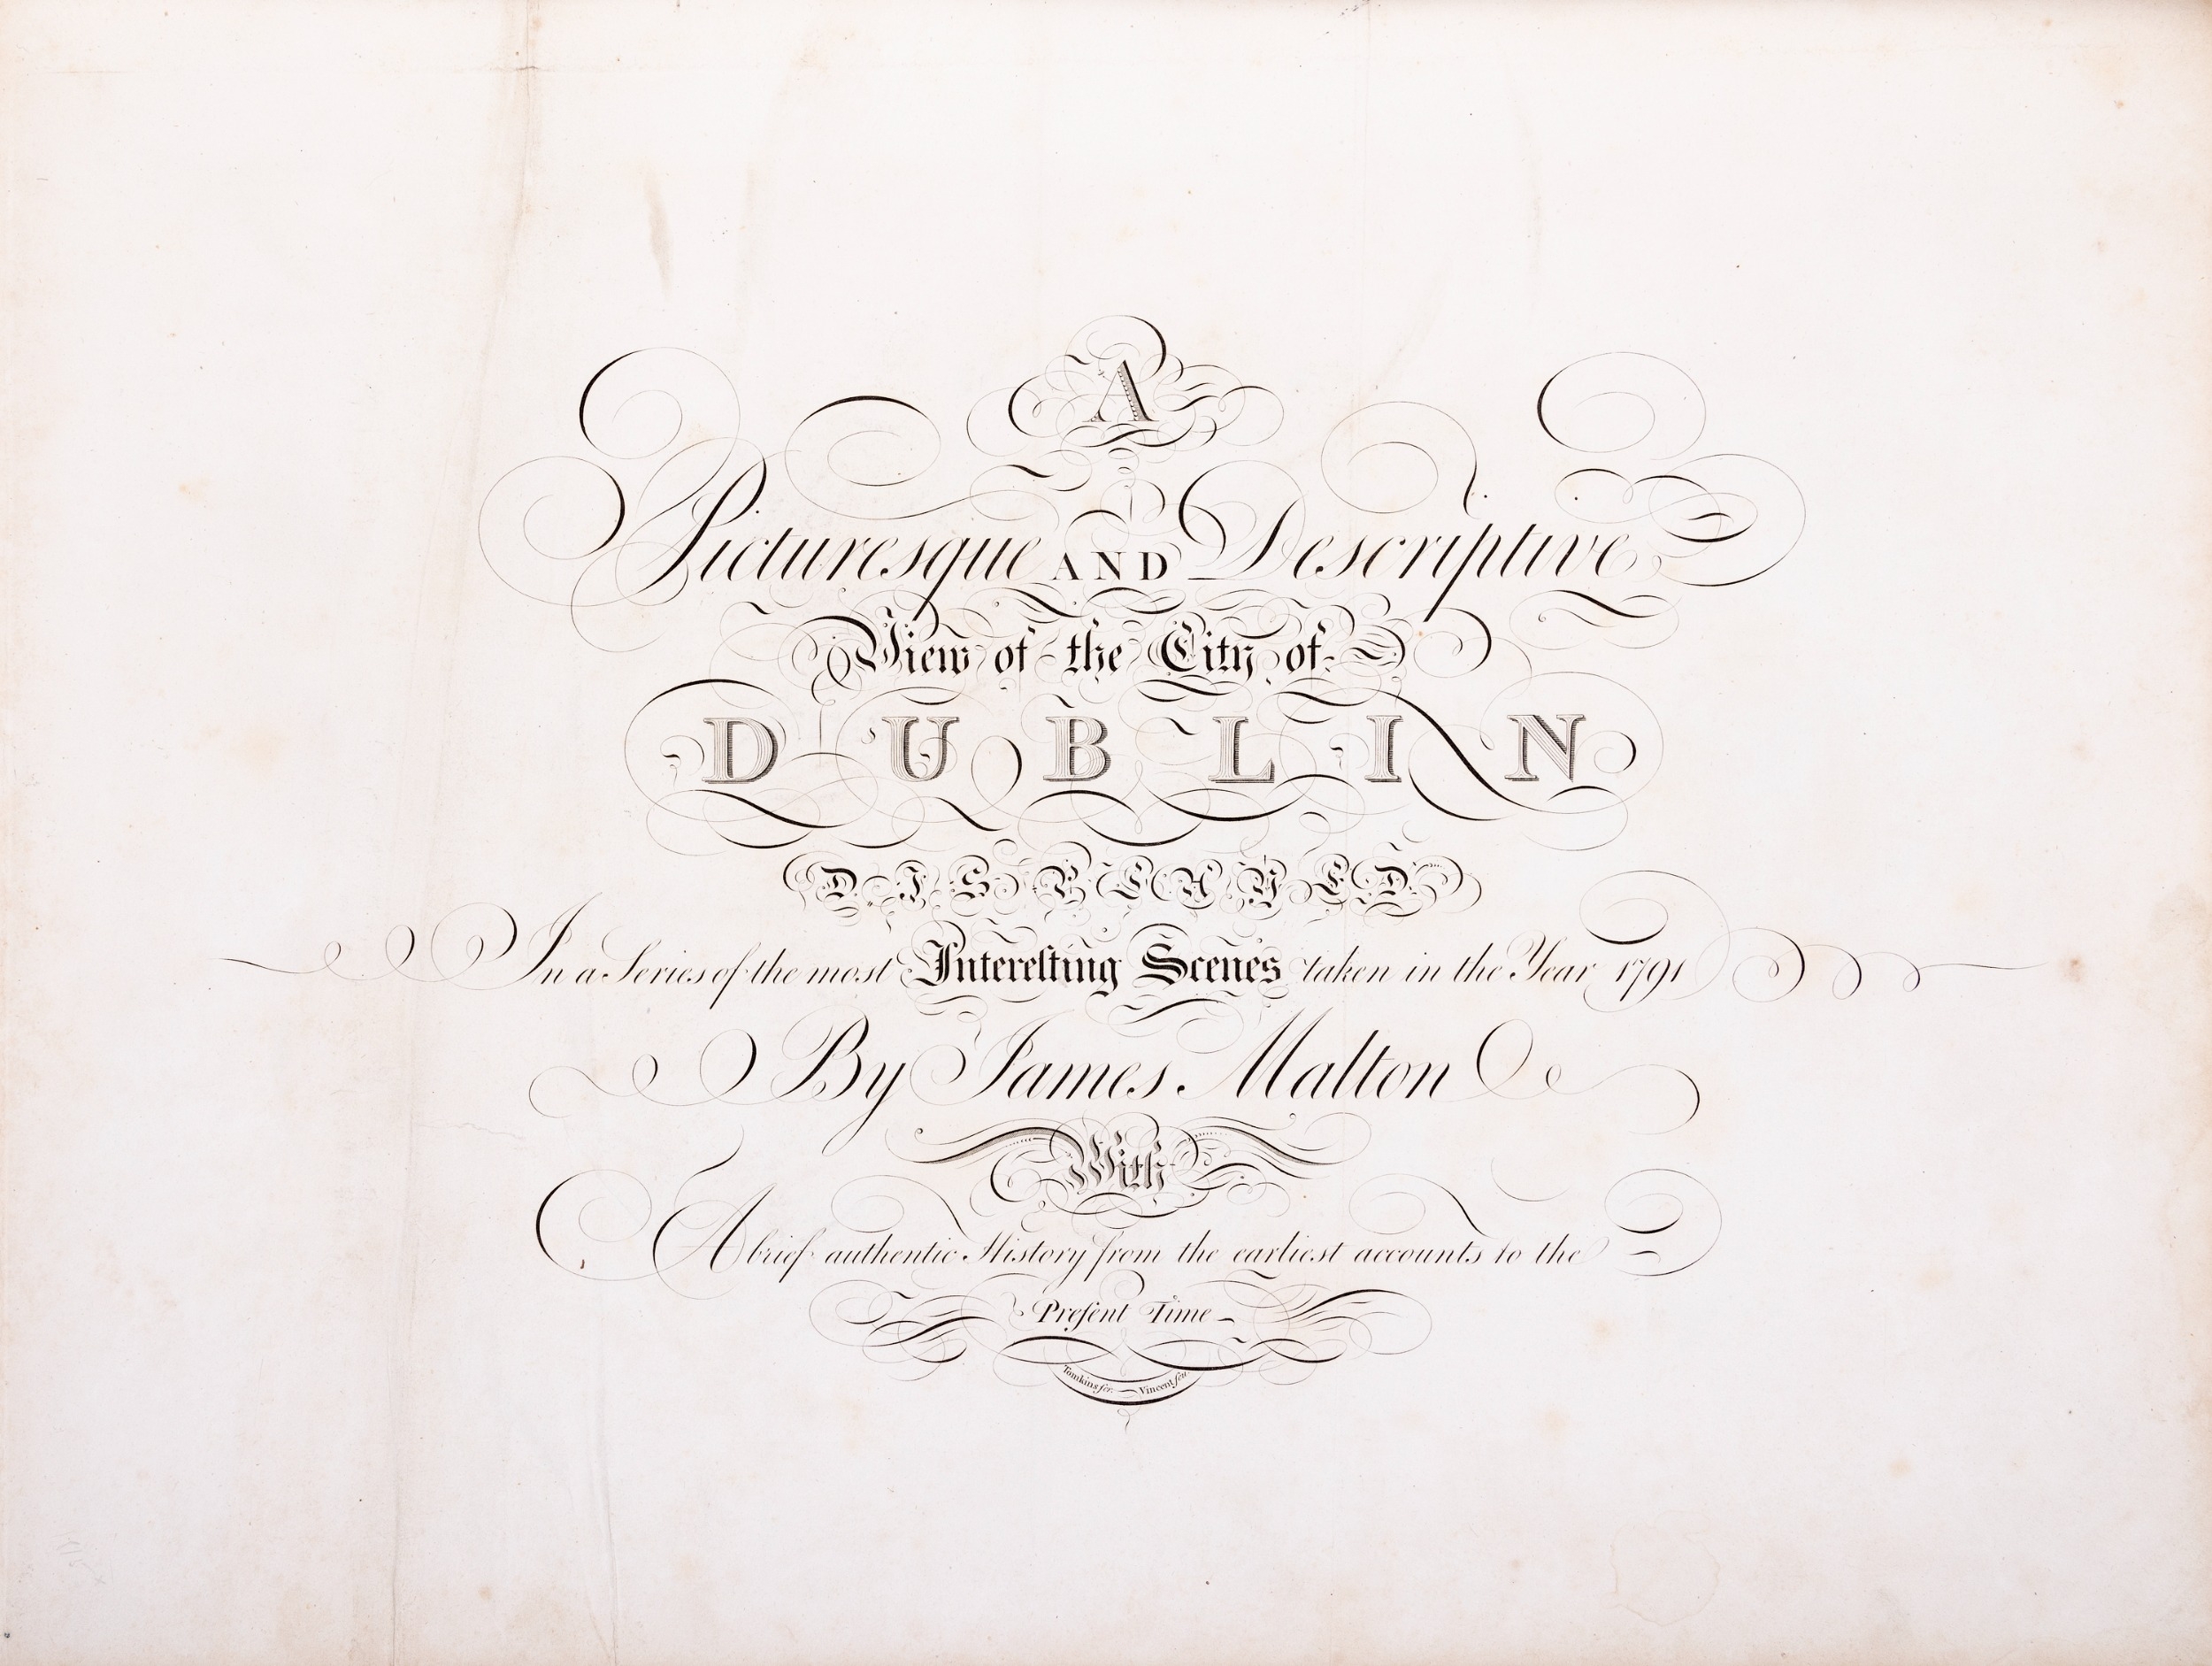 A
Picturesque AND Descriptive
View of the City of
DUBLIN
DISPLAYED
In a Series of the most Intereſting Scenes taken in the Year 1791
By James Malton
With
A brief authentic History from the earliest accounts to the
Preſent Time
Tomkins ſcr. Vincent ſcu